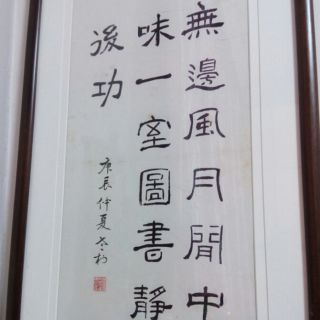 無邊風月閒中
味一室圖書靜
後功
庚辰仲夏